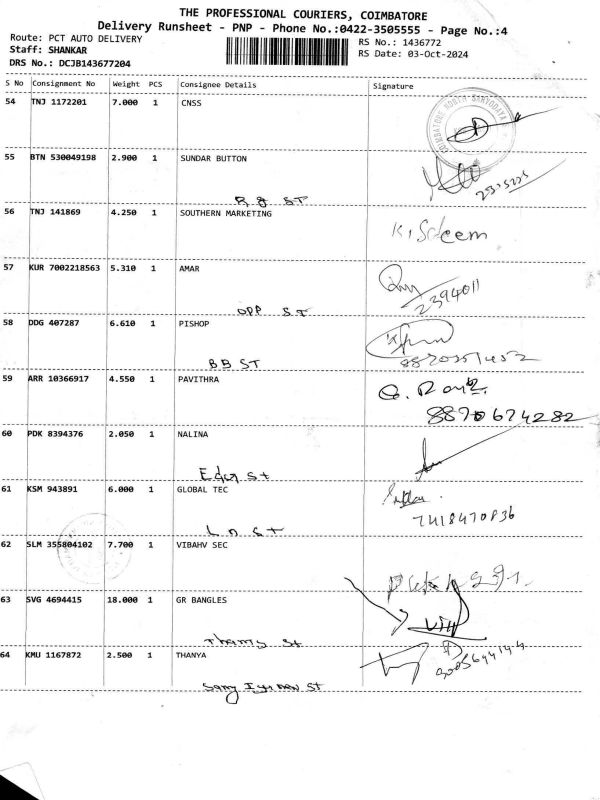 THE PROFESSIONAL COURIERS, COIMBATORE
Delivery Runsheet - PNP - Phone No.:0422-3505555 - Page No.:4
Route: PCT AUTO DELIVERY RS No.: 1436772
Staff: SHANKAR RS Date: 03-Oct-2024
DRS No.: DCJB143677204
S No Consignment No Weight PCS Consignee Details Signature
54 TNJ 1172201 7.000 1 CNSS
COIMBATORE NORTH
55 BTN 530049198 2.900 1 SUNDAR BUTTON
R G ST
56 TNJ 141869 4.250 1 SOUTHERN MARKETING
K. Saleem
57 KUR 7002218563 5.310 1 AMAR
2394011
OPP ST
58 DDG 407287 6.610 1 PISHOP
BB ST
59 ARR 10366917 4.550 1 PAVITHRA
8870674282
60 PDK 8394376 2.050 1 NALINA
St
61 KSM 943891 6.000 1 GLOBAL TEC
7418470836
St
62 SLM 355804102 7.700 1 VIBAHV SEC
63 SVG 4694415 18.000 1 GR BANGLES
St
64 KMU 1167872 2.500 1 THANYA
St